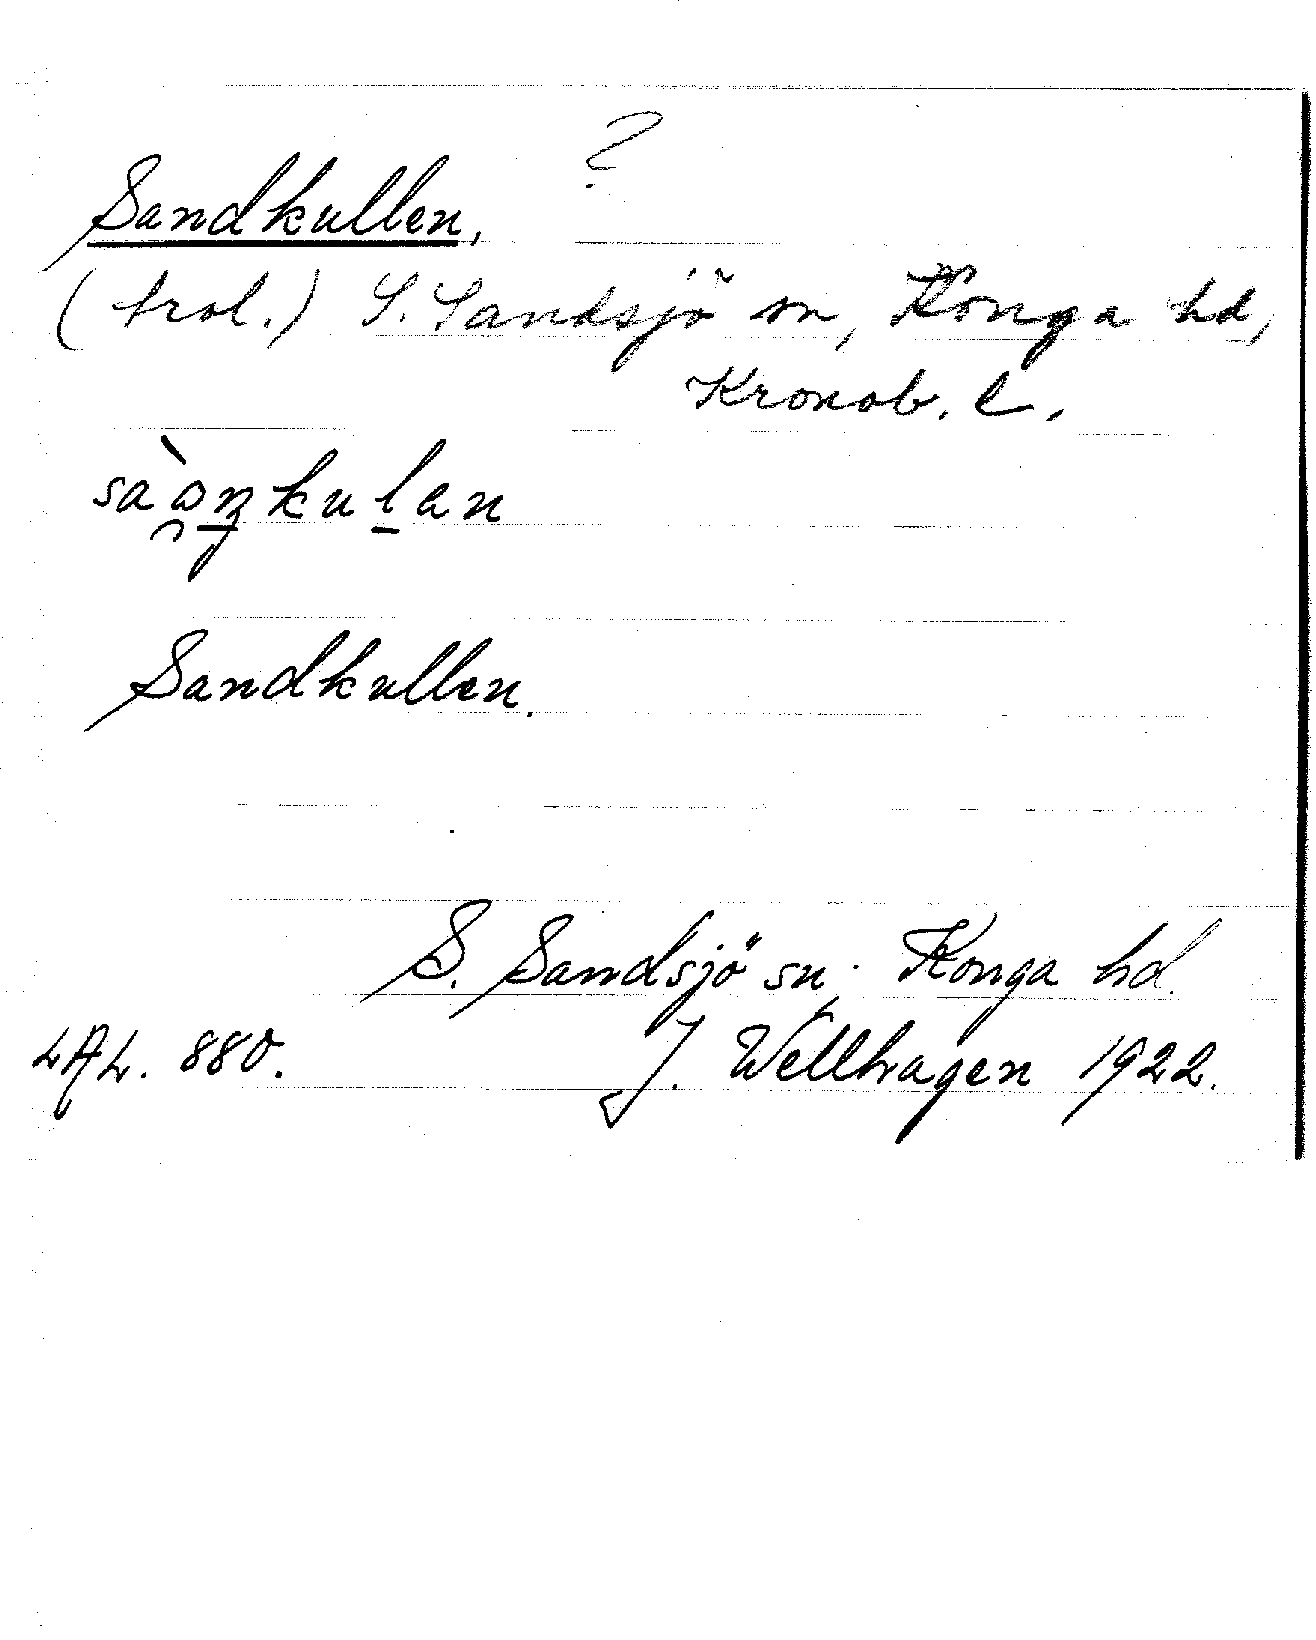 ?
Sandkullen,
(trol.) S. Sandsjö sn, Konga hd,
Kronob. l.
Sandkullen.
S. Sandsjö sn. Konga hd.
LAL. 880. J. Wellhagen 1922.